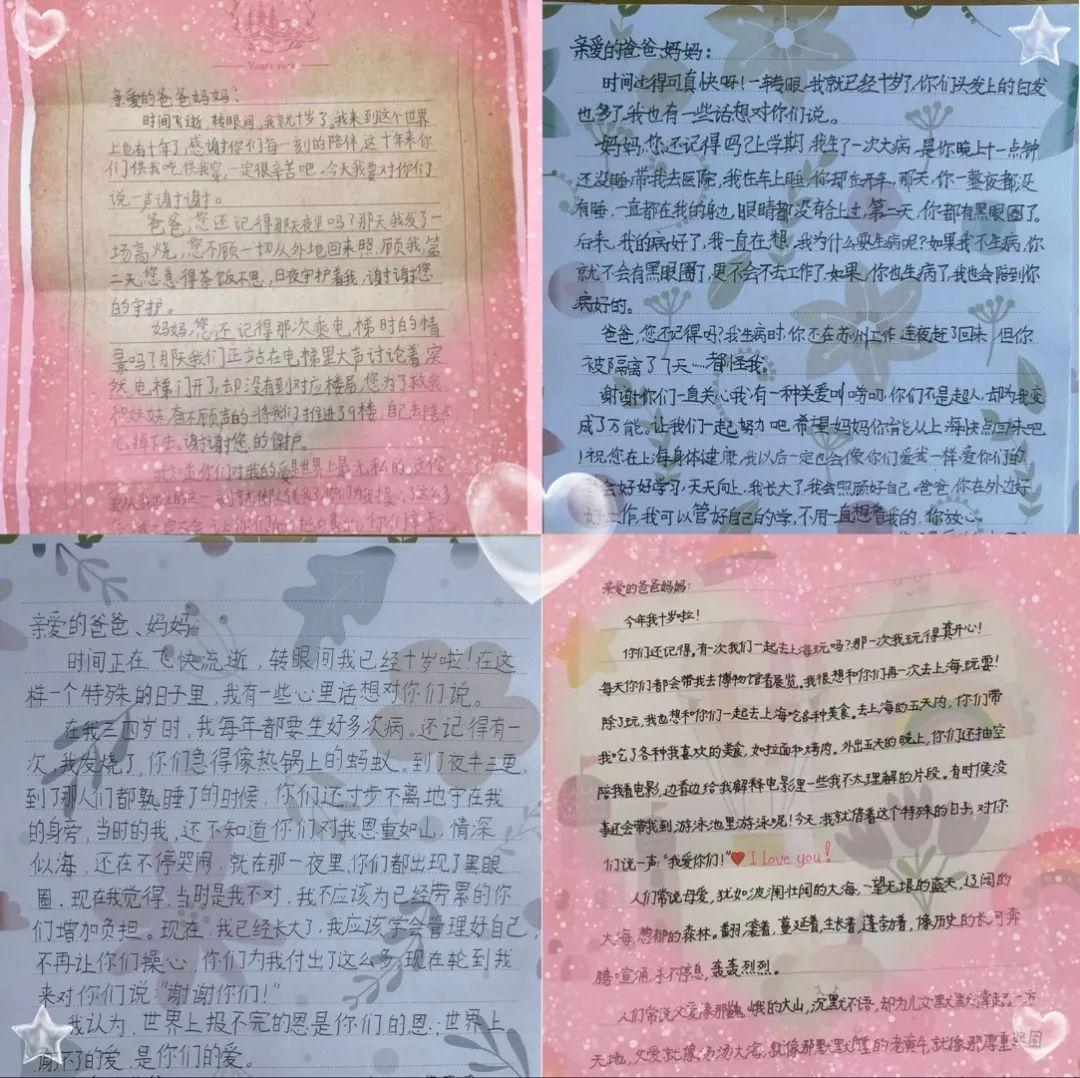 亲爱的爸爸妈妈：
时间飞逝,转眼间,我就十岁了。我来到这个世界
上也有十年了,感谢你们每一刻的陪伴,这十年来你
们供我吃供我穿,一定很辛苦吧。今天我要对你们
说一声谢谢。
爸爸,您还记得那天夜里吗？那天我发了一
场高烧,您不顾一切从外地回来照顾我,第
二天,您急得茶饭不思,日夜守护着我,谢谢您
的守护。
妈妈,您还记得那次乘电梯时的情
景吗？那时我们正站在电梯里大声讨论着,突
然,电梯门开了,却没有到对应楼层,您为了救我
和妹妹,不顾的将我们推进了9楼,自己去
掉下去。谢谢您的保护。
你们对我的爱是世界上最无私的,
亲爱的爸爸、妈妈：
时间过得可真快呀！一转眼,我就已经十岁了,你们头发上的白发
也多了,我也有一些话想对你们说。
妈妈,您还记得吗？上学期,我生了一次大病,是你晚上十一点钟
还没睡,带我去医院,我在车上睡,你却在开车,那天,你一整夜都没
有睡,一直都在我的身边,眼睛都没合上过,第二天,你都有黑眼圈了。
后来,我的病好了,我一直在想,我为什么要生病呢？如果我不生病,你
就不会有黑眼圈了,更不会不去工作了,如果,你也生病了,我也会陪到你
病好的。
爸爸,您还记得吗？我生病时,你还在苏州工作,连夜赶了回来,但你
被隔离了7天……都怪我。
谢谢你们一直关心我,有一种关爱叫唠叨,你们不是超人,却为我变
成了万能。让我们一起努力吧,希望妈妈你能从上海快点回来吧
！祝您在上海身体健康,我以后一定也会像你们爱我一样爱你们的,
我会好好学习,天天向上,我长大了,我会照顾好自己。爸爸,你在外边好
好工作,我可以管好自己的学,不用一直想着我的,你放心。
亲爱的爸爸、妈妈：
时间正在飞快流逝,转眼间我已经十岁啦！在这
样一个特殊的日子里,我有一些心里话想对你们说。
在我三四岁时,我每年都要生好多次病。还记得有一
次,我发烧了,你们急得像热锅上的蚂蚁。到了夜半三更,
到了那人们都熟睡了的时候,你们还寸步不离地守在我
的身旁,当时的我,还不知道你们对我恩重如山,情深
似海,还在不停哭闹,就在那一夜里,你们都出现了黑眼
圈,现在我觉得,当时是我不对,我不应该为已经劳累的你
们增加负担。现在,我已经长大了,我应该学会管理好自己,
不再让你们操心,你们为我付出了这么多,现在轮到我
来对你们说:“谢谢你们！”
我认为,世界上报不完的恩是你们的恩；世界上
谢不了的爱,是你们的爱。
亲爱的爸爸妈妈：
今年我十岁啦！
你们还记得,有一次我们一起去上海玩吗？那一次我玩得真开心！
每天你们都会带我去博物馆看展览。我很想和你们再一次去上海玩耍！
除了玩,我也想和你们一起去上海吃各种美食。去上海的五天内,你们带
我吃了各种我喜欢的美食,如拉面和烤肉。外出五天的晚上,你们还抽空
陪我看电影,边看边给我解释电影里一些我不太理解的片段。有时候没
事还会带我到游泳池里游泳呢！今天,我就借着这个特殊的日子,对你
们说一声:“我爱你们！”❤I love you！
人们常说母爱,犹如波澜壮阔的大海,一望无垠的蓝天,辽阔的
大海,葱郁的森林。翻滚着,蔓延着,生长着,蓬勃着,像历史的长河奔
腾喧涌,永不停息,轰轰烈烈。
人们常说父爱像那巍峨的大山,沉默不语,却为儿女默默撑起一方
天地,父爱就像汤汤大海,就像那里默默的老黄牛,就像那厚重坚固